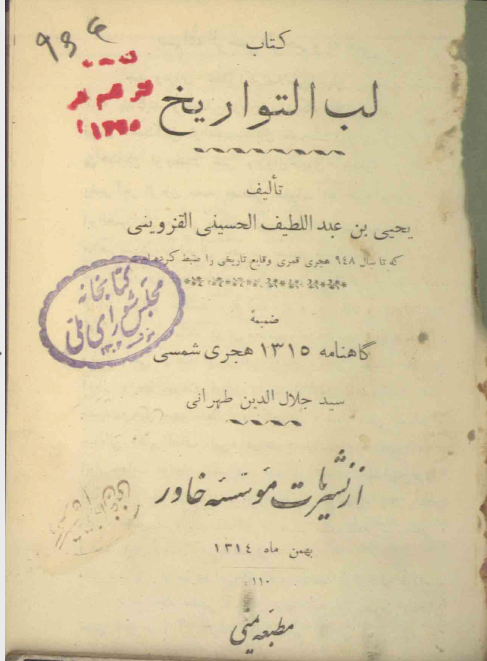 ۹۳۶
کتاب
لب التواریخ
تألیف
یحیی بن عبد اللطیف الحسینی القزوینی
که تا سال ۹٤۸ هجری قمری وقایع تاریخی را ضبط کرده است
کتابخانه
مجلس شورای ملی
ضمیمهٔ
گاهنامه ۱۳۱۵ هجری شمسی
سید جلال الدین طهرانی
از نشریات مؤسسه خاور
بهمن ماه ۱۳۱٤
۱۱۰
مطبعه یمنی